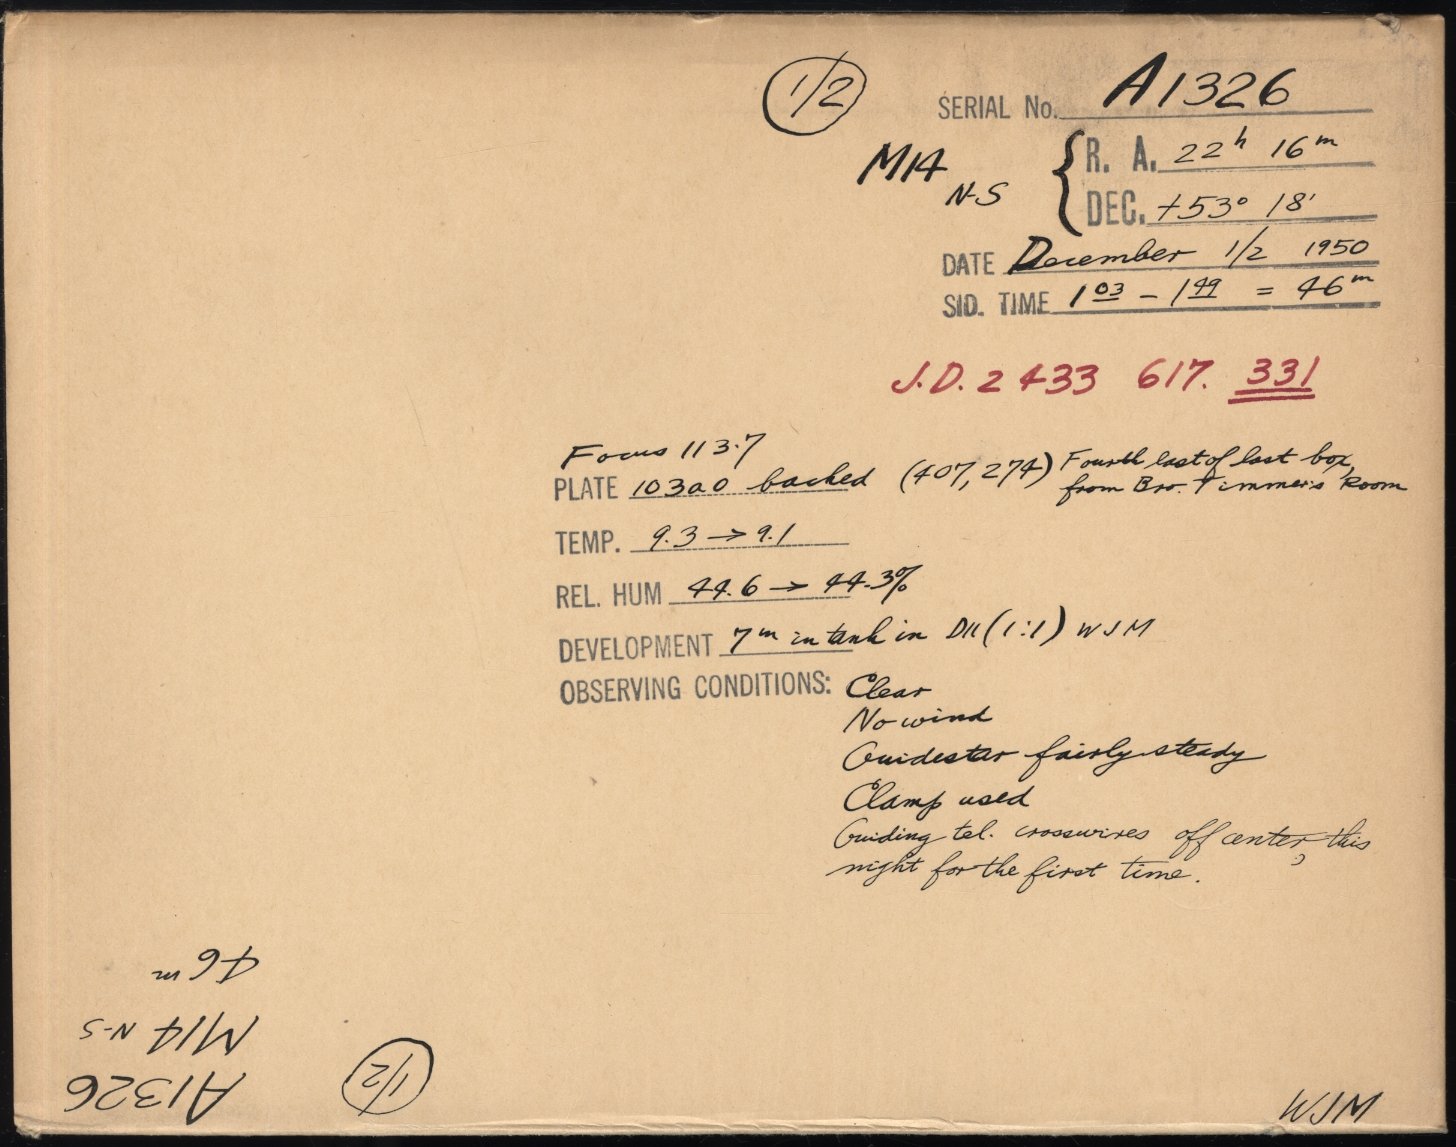 1/2
SERIAL No. A1326
M14 N-S
R. A. 22h 16m
DEC. +53° 18'
DATE December 1/2 1950
SID. TIME 1 03 - 1 49 = 46m
J.D. 2433 617. 331
Focus 113.7
PLATE 103a0 backed (407, 274) Fourth last of last box,
from Bro. Timmers Room
TEMP. 9.3 → 9.1
REL. HUM 44.6 → 44.3%
DEVELOPMENT 7m in tank in D11 (1:1) WJM
OBSERVING CONDITIONS: Clear
No wind
Guidestar fairly steady
Clamp used
Guiding tel. crosswires off center, this
night for the first time.
46m
M14 N-S
A1326
1/2
WJM